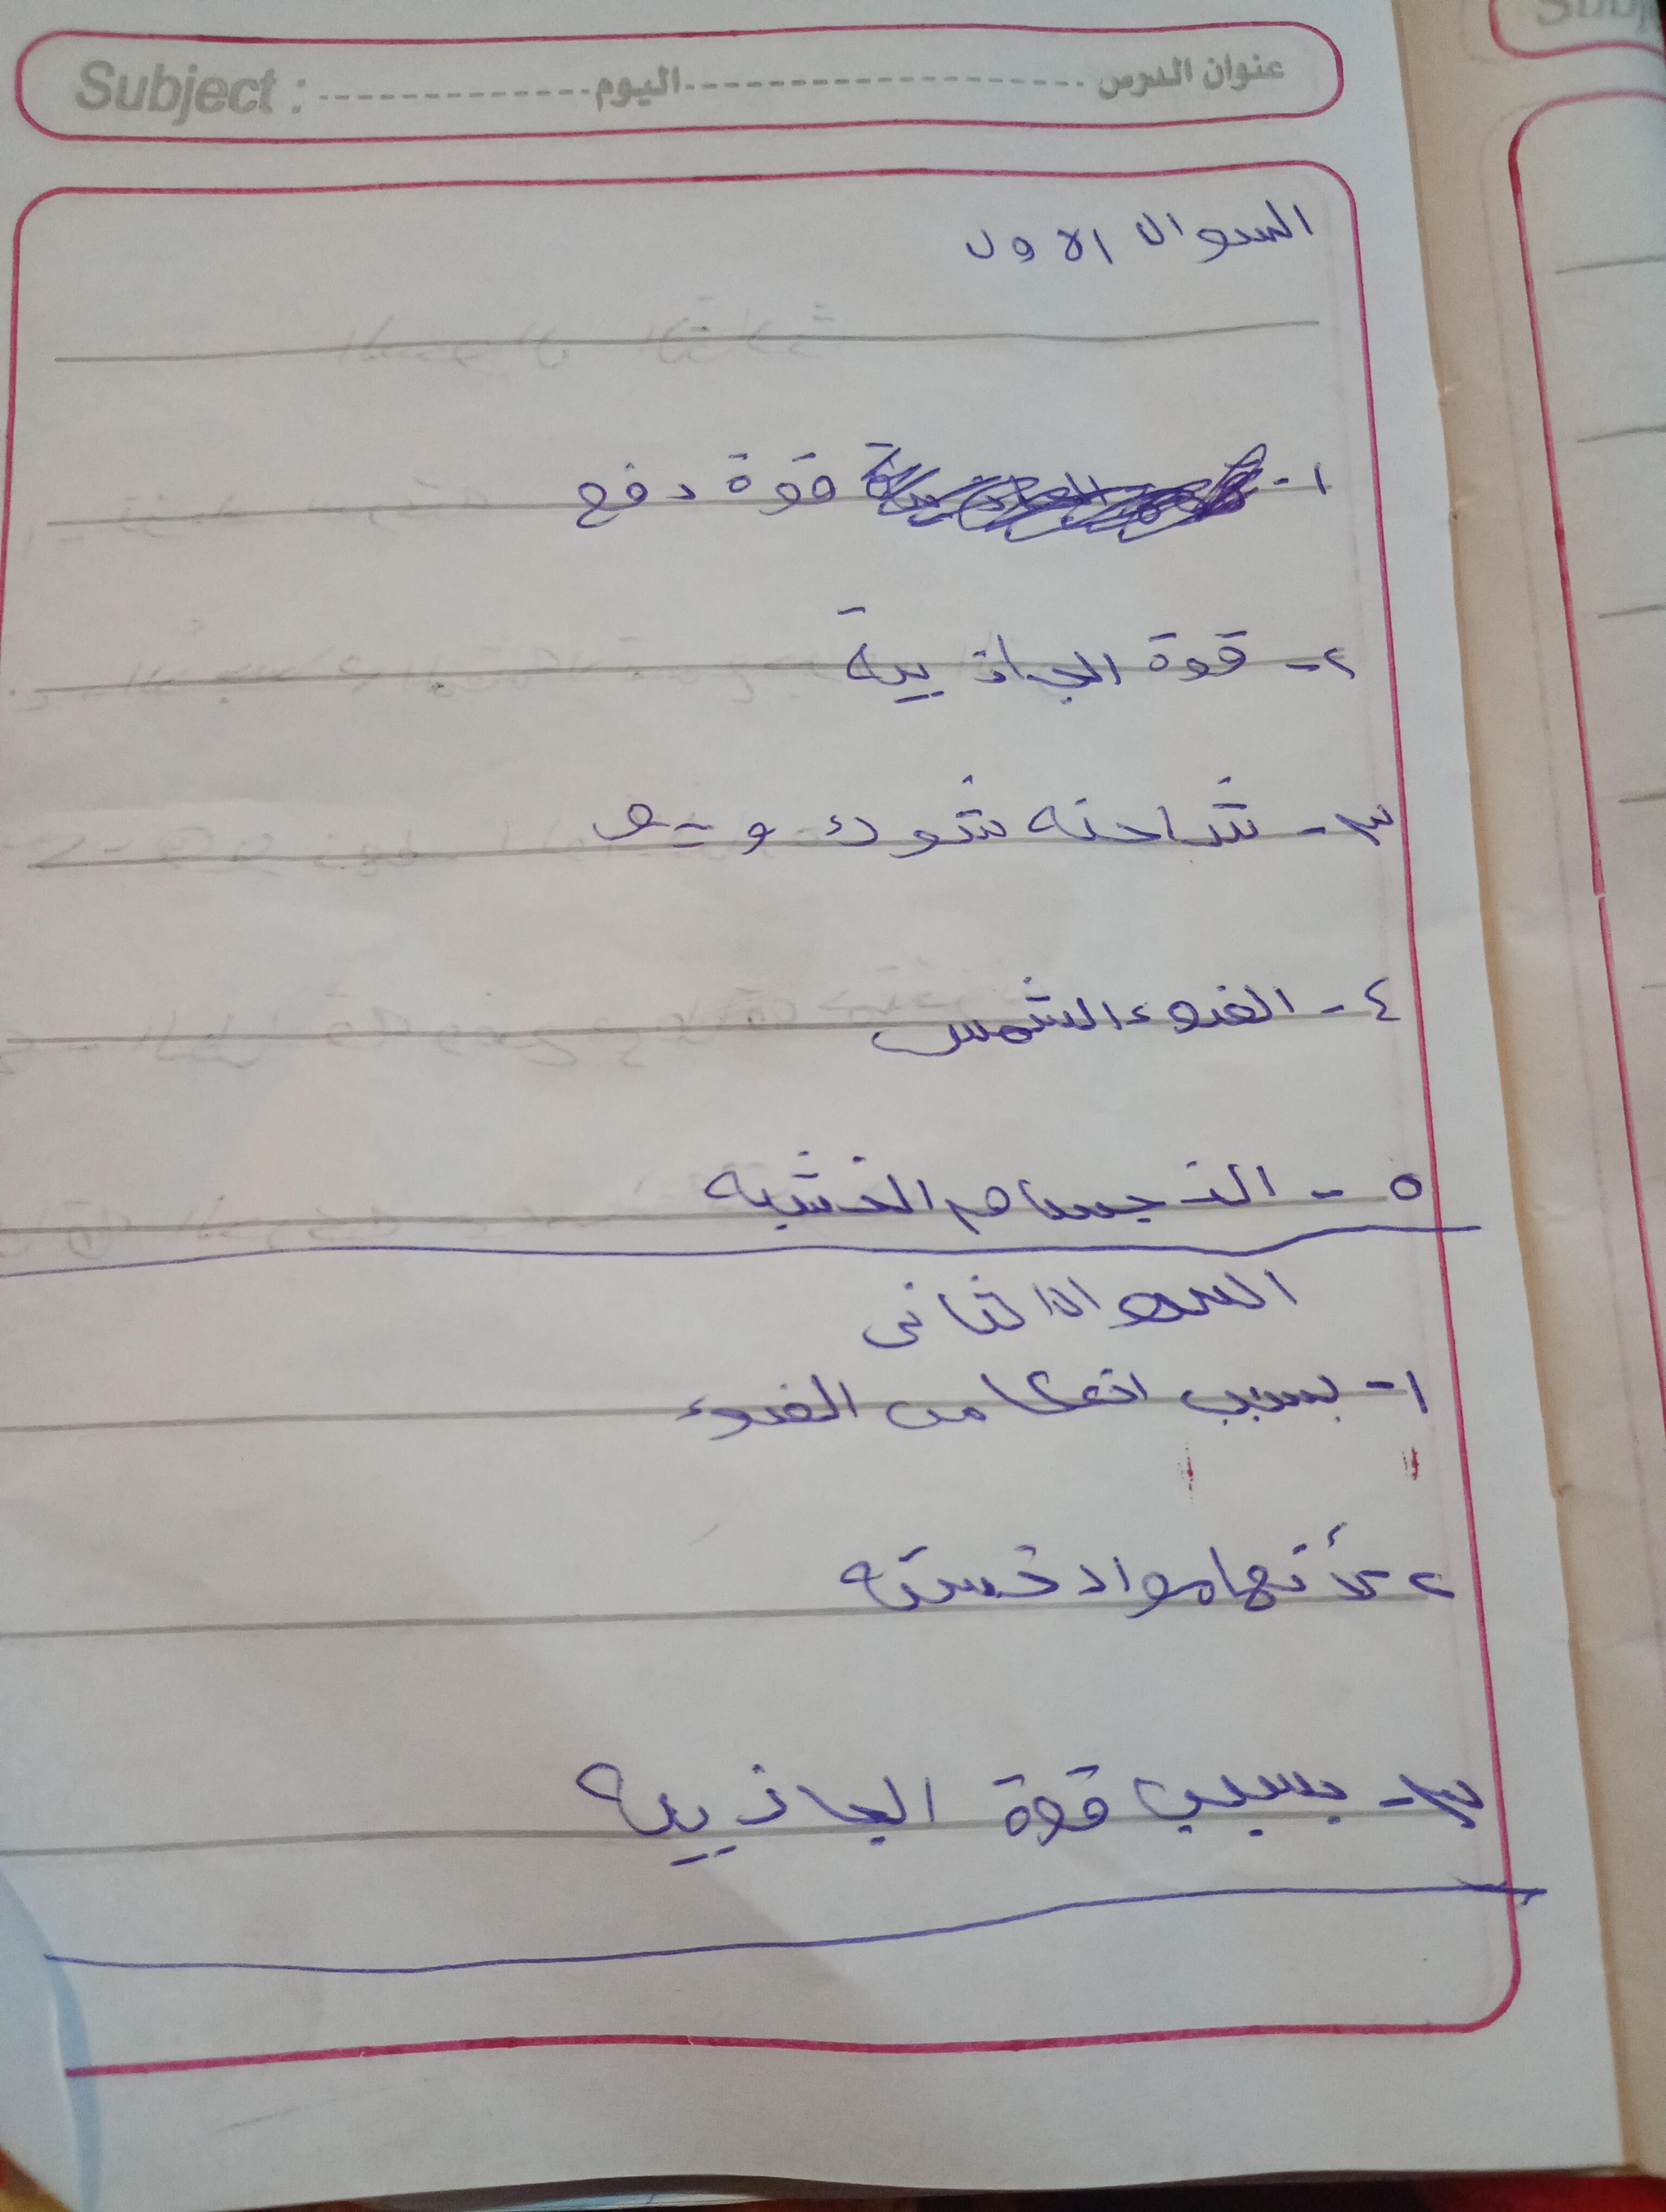 Subject : عنوان الدرس اليوم
السوال الاول
١- قوة دفع
٢- قوة الجاذبية
٣- شاحنه شوك و
٤- الضوء الشمس
٥- الاجسام الخشبه
السوال الثانى
١- بسبب انعكاس الضوء
٢- لأنها مواد خشنه
٣- بسبب قوة الجاذبيه